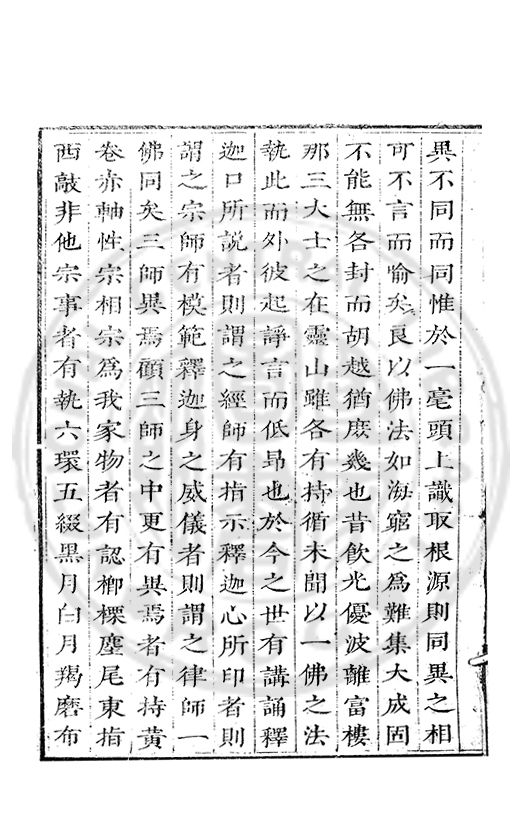 異不同而同惟於一毫頭上識取根源則同異之相
可不言而喻矣良以佛法如海窮之為難集大成固
不能無各封而胡越猶庶幾也昔飲光優波離富樓
那三大士之在靈山雖各有持循未聞以一佛之法
執此而外彼起諍言而低昻也於今之世有講誦釋
迦口所說者則謂之經師有指示釋迦心所印者則
謂之宗師有模範釋迦身之威儀者則謂之律師一
佛同矣三師異焉顧三師之中更有異焉者有持黃
卷赤軸性宗相宗爲我家物者有認楖㮚麈尾東指
西敲非他宗事者有執六環五綴黑月白月羯磨布